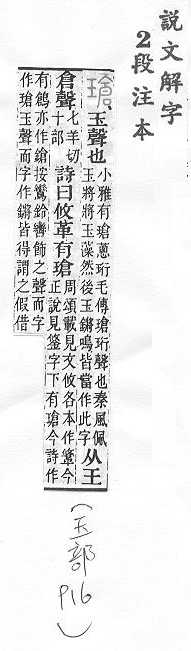 說文解字
2段注本
瑲 玉聲也 小雅有瑲蔥珩毛傳瑲珩聲也秦風佩
玉將將玉藻然後玉鏘鳴皆當作此字 从王
倉聲 七羊切
十部 詩曰攸革有瑲 周頌載見文攸各本作鋚今
正說見鋚字下有瑲今詩作
有鶬亦作鎗按鸞鈴轡飾之聲而字
作瑲玉聲而字作鏘皆得謂之假借
(玉部 P16)